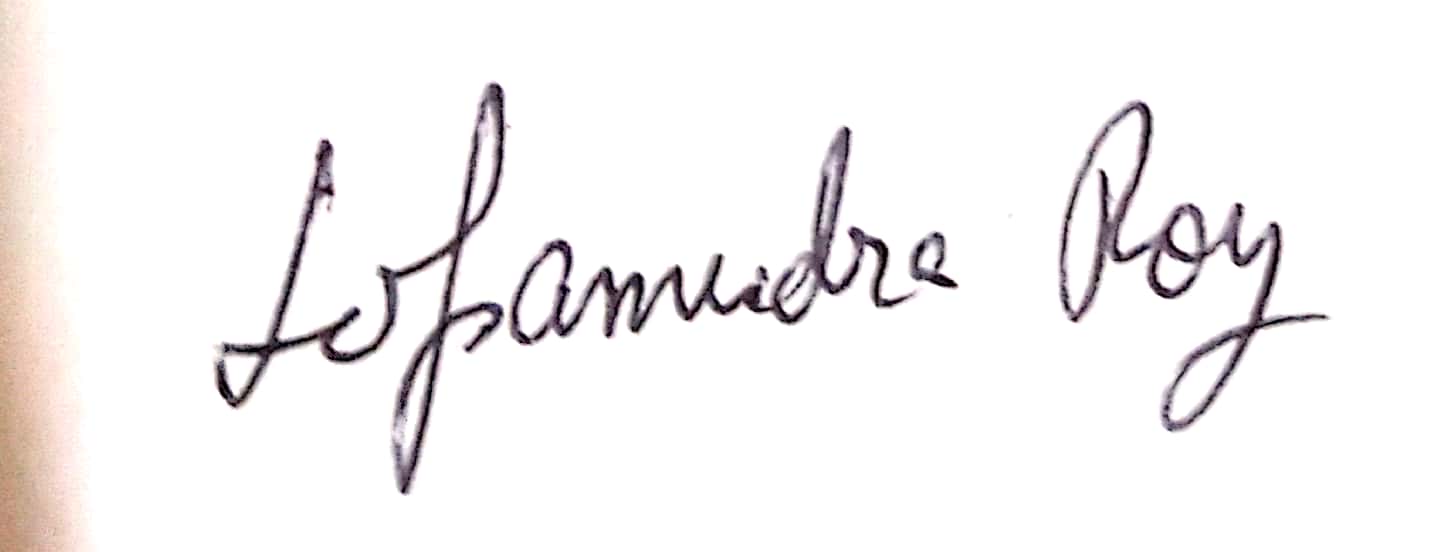 Lopamudra Roy